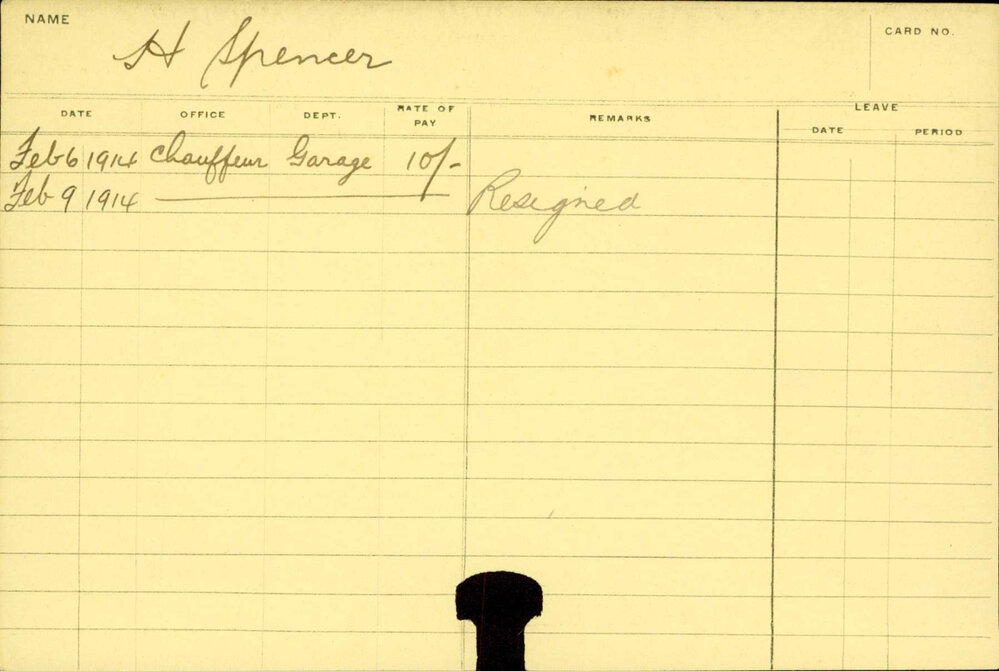 NAME
H Spencer
CARD NO.
DATE OFFICE DEPT. RATE OF PAY REMARKS LEAVE
DATE PERIOD
Feb 6 1914 Chauffeur Garage 10/-
Feb 9 1914 Resigned